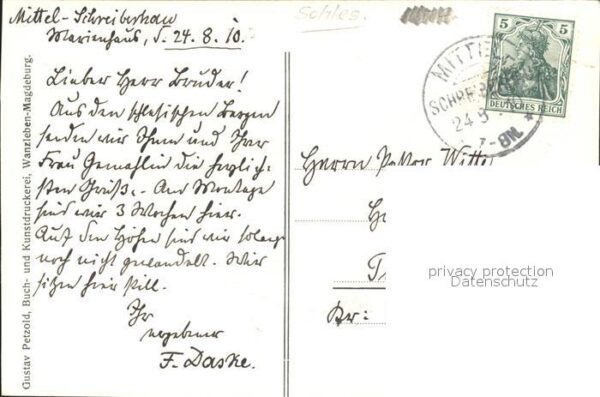 Mittel-Schreiberhau
Marienhaus, d. 24.8.10.
Schles.
Lieber Herr Bruder!
Aus den schlesischen Bergen
senden wir Ihnen und Ihrer
Frau Gemahlin die herzlich-
sten Grüße. Am Montage
sind wir 3 Wochen hier.
Auf den Höhen sind wir solang
noch nicht gewandelt. Wir
sitzen hier still.
Ihr
ergebener
F. Daske.
Gustav Petzold, Buch- und Kunstdruckerei, Wanzleben-Magdeburg.
5 5
DEUTSCHES REICH
MITTEL
SCHREIBERHAU
24 8
7-8N.
Herrn Pastor
privacy protection
Datenschutz
Kr: